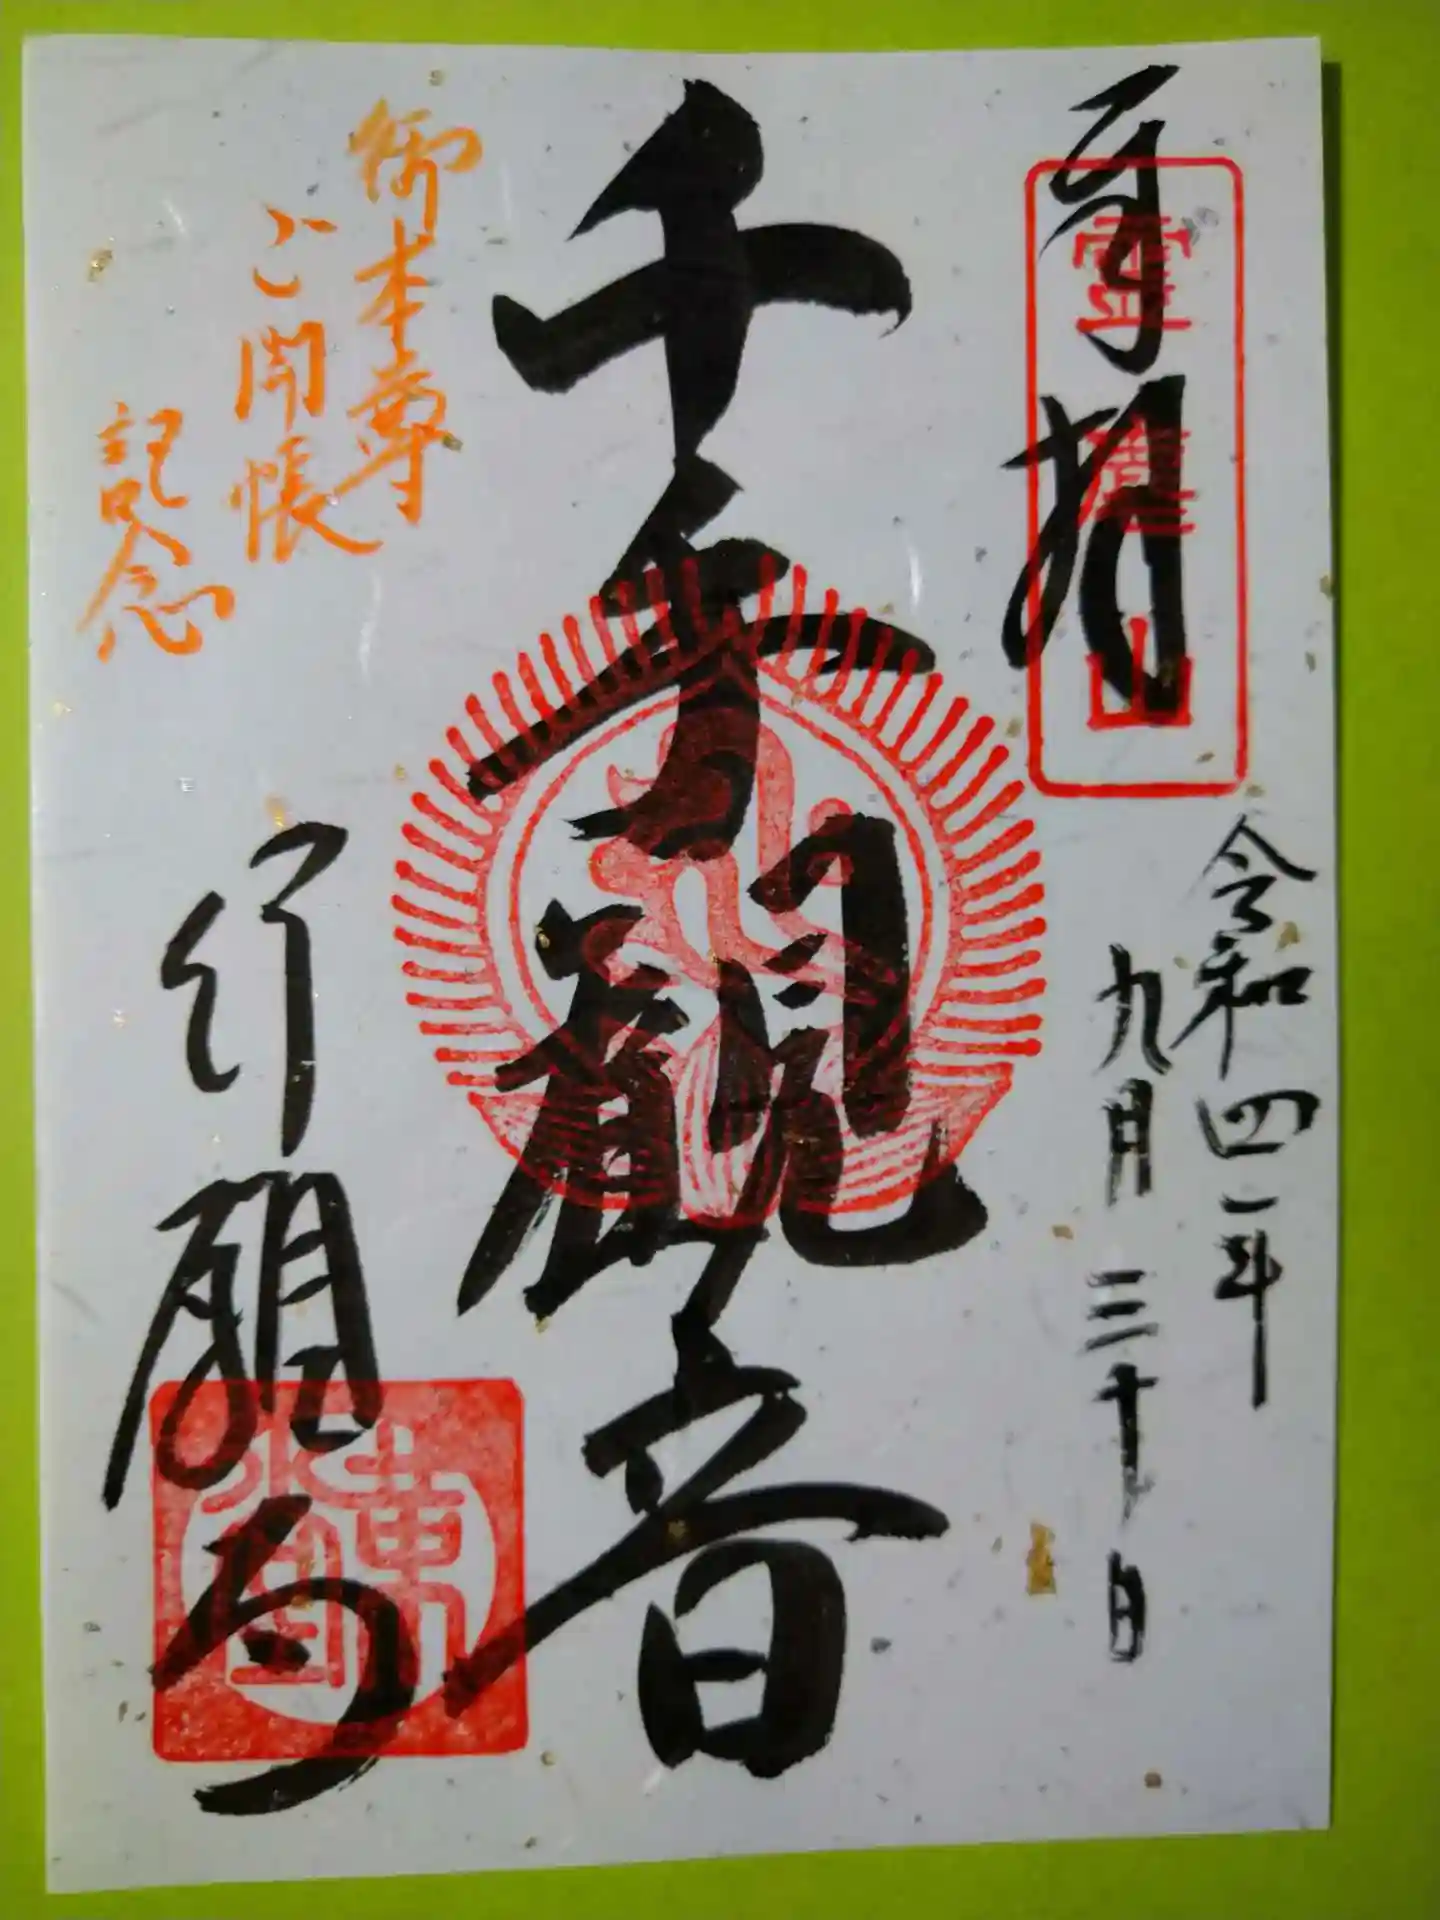 奉拝
霊鷲山
令和四年
九月三十日
千手観音
御本尊
ご開帳
記念
行願寺